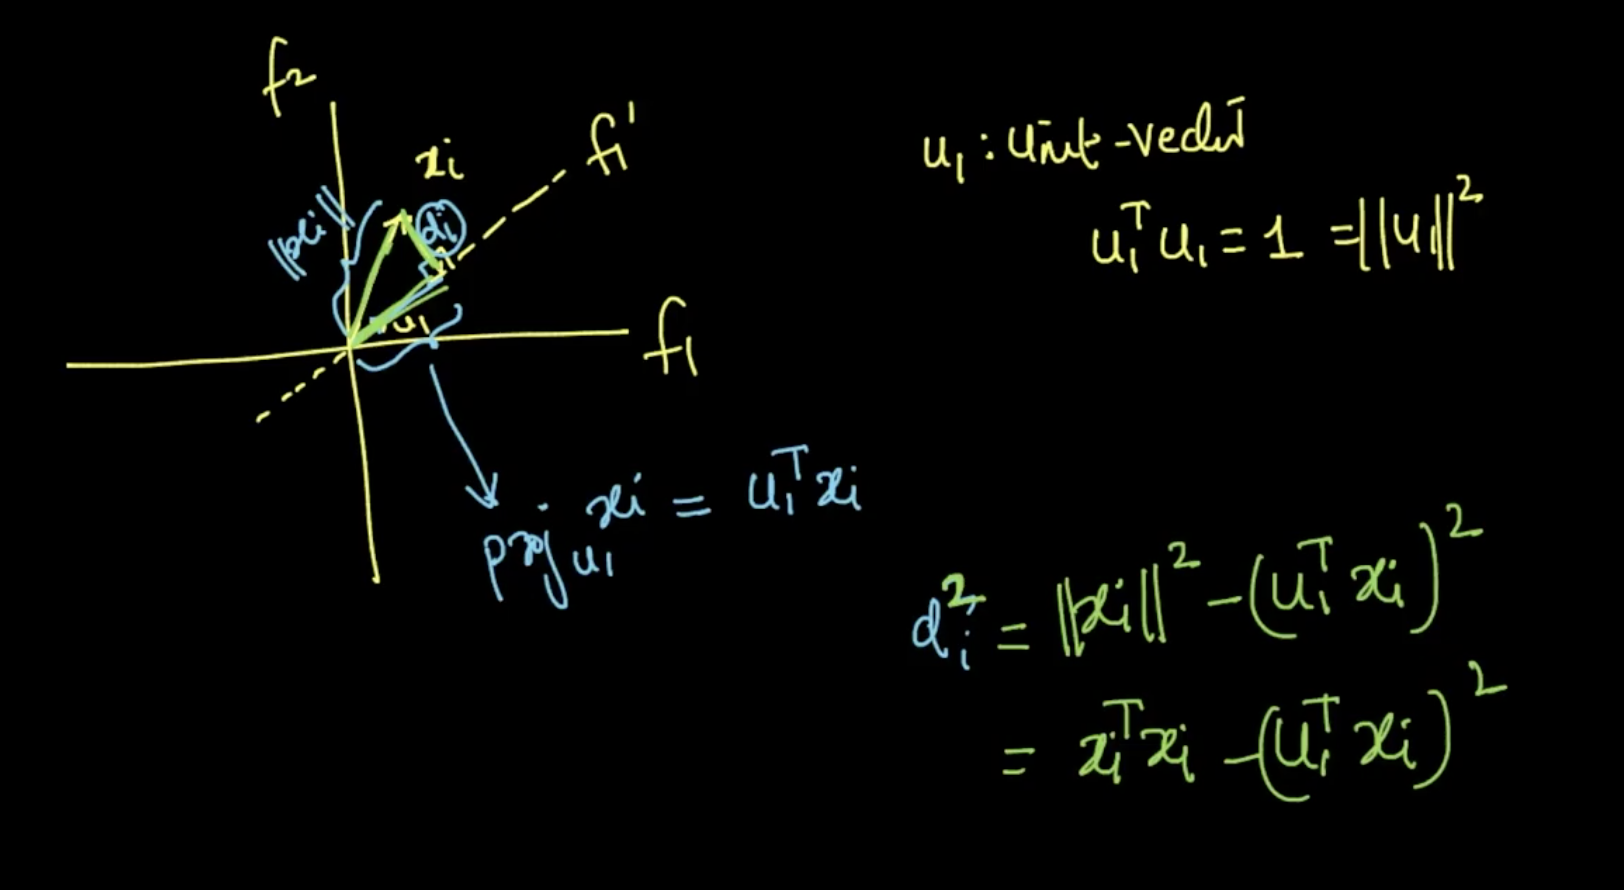 f2
xi
f1'
||xi||
di
u1
f1
proj u1 xi = u1^T xi
u1 : Unit-vector
u1^T u1 = 1 = ||u1||^2
di^2 = ||xi||^2 - (u1^T xi)^2
= xi^T xi - (u1^T xi)^2